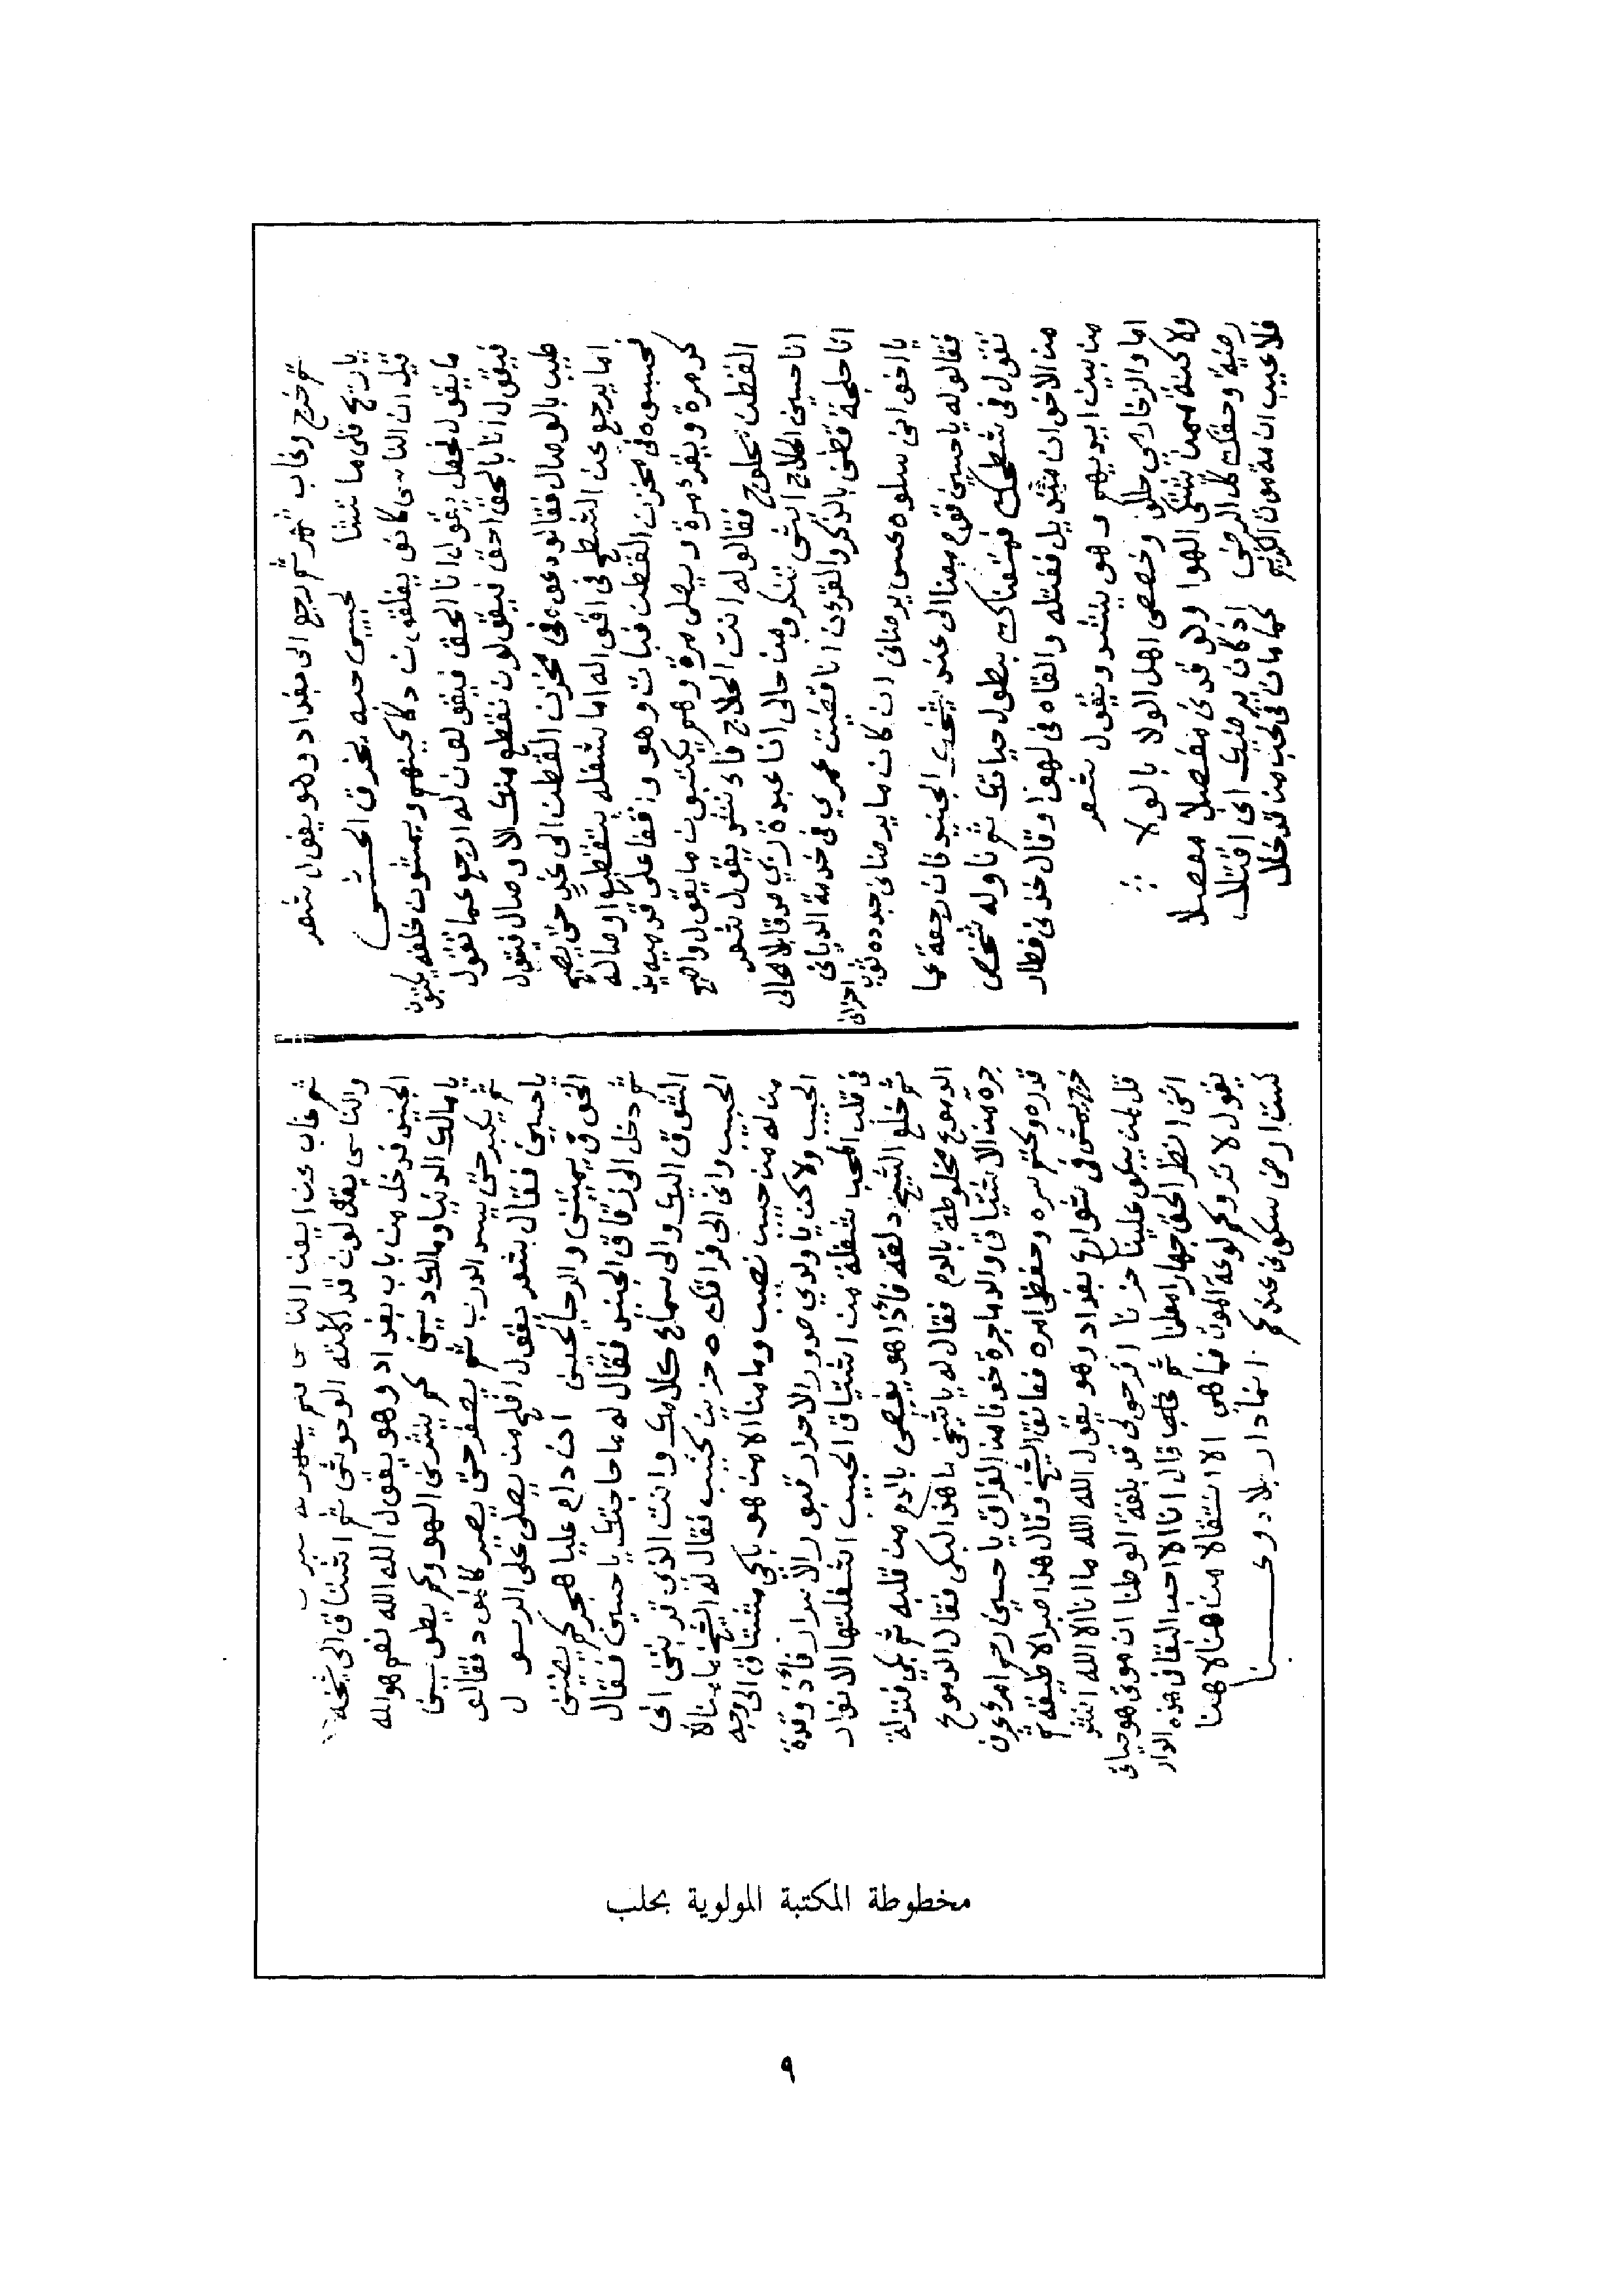 ثم خرج وغاب شهر ثم رجع الى بغداد وهو يقول شعر
يا ريح قلى ما تشا لحبيبى حبه يخرق الحشى
قيل ان الناس كانو يغلقون دكاكينهم ويمشون خلفه يكتبون
ما يقول فجعل يقول انا الحق فيقولون له ارجع عما تقول
فيقول انا بالحق احق فيقولون نقطع منك الاوصال فيقول
طيب بالوصال فقالو دعوه فى مخزن القطن الى غد حتى يصبح
اما يرجع عن الشطح فى اقواله اما شغله بتقطيع اوصاله
فحبسوه فى مخزن القطن فبات وهو واقفا على قدميه يذ
كر مرة ويقرء مرة ويصلى مرة وهم يكتبون ما يقول واصبح
القطن محلوج فقالو له انت الحلاج فانشد يقول شعر
انا حسين الحلاج ايش تنكرو من حالى انا عبدة ربي موقا للا محالى
انا حلجة قطنى بالذكر والقرءن انا قضيت عمري فى خدمة الديانى
يا اخوانى سلوه عسى يرضانى ان كان ما يرضانى جددة ثوب احزانى
فقالو له يا حسين قوم معنا الى عند شيخك الجنيد فان رجعة عما
تقول فى شطحك فهتفناك بطول حياتك ثم ناوله شخص
من الاخوان منديل فقتله والقاه فى لهوا وقال خذنى فطار
من بين ايديهم وهو ينشد ويقول شعر
اما والزخارمى جلكو وخصصى اهل الولا بالولا
ولا كنة ممن يشتكى الهوا ولو قدنى مفصلا مفصلا
رضية وحقك كل الرضى اذ كان يرضيك انى اقتلا
فلا عجيب ان مة موت الكريم كما مات فى الحب من قد خلا
ثم غاب عن ايعن النا
والناس يقولون قد اكلته الوحوش ثم اشتاق الى شيخه
الجنيد فدخل من باب بغداد وهو يقول الله الله نعم هو الله
يا مالك الدنيا ومالك دينى كم ينشرنى الهوو وكم يطوينى
ثم يكبر حتى يسد الدرب ثم يصغر حتى يصير كا دقفالو
يا حسين فقال بشعر يقول افلح من يصلى على الرسول
الخوف يميتنى والرجا يحينى ان دام عليا هجركم يضنينى
ثم دخل الى زقاق الجنيد فقال له ما حاجتك يا حسين فقال
الشوق اليك والى سماع كلامك وانت الذى قربتنى الى
الحبيب وانى الى فراقك حزين كئيب فقال له الشيخ ما منا الا
من له من حبيب نصيب وما منا الا من هو باكي مشتاق الى وجه
الحبيب ولاكن يا ولدي صدور الاحرار قبور الاسرار فاذا وقدة
فى قلب المحب شعلة من اشتياق الحبيب اشغلتها الانوار
ثم خلع الشيخ دلقه فاذا هو يفيض بالدم من قلبه ثم بكى فنزلة
الدموع مخلوطة بالدم فقال له يا شيخى ما هذا البكى فقال الدموع
جرة من الاشتياق والدما جرة خوفا من الفراق يا حسين رحم الله امرء عرف
قدره وكتم سره وحفظ امره فعانق الشيخ وقال هذا صبر لا طيقه ثم
خرج يمشى فى شوارع بغداد وهو يقول الله الله ما انا الا الله انشد
قل لمن يبكو علينا حزنا افرحو لى قد بلغة الوطنا ان موتى هو حياتى
اننى انظر الحق جهارا معلنا ثم غاب قال انا لا احب البقا فى هذه الدار
يقول لا تروكم لوعة الموت فما هى الا انتقالا من هنا لا هنا
لست ارضى سكونى عندكم انما دار بلادى عدنا
مخطوطة المكتبة المولوية بحلب
٩